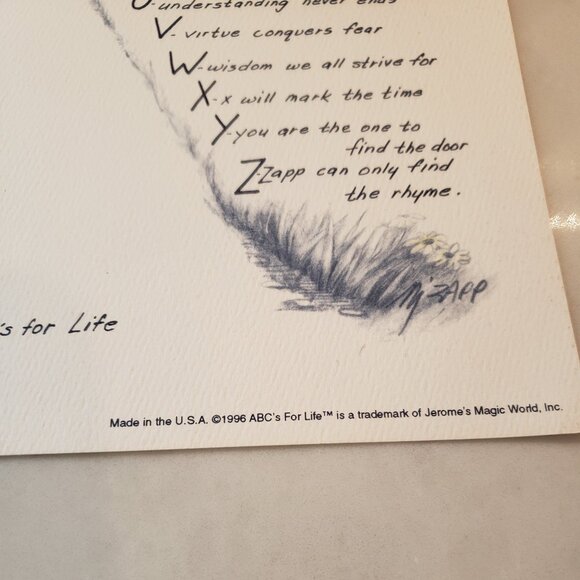 U-understanding never ends
V-virtue conquers fear
W-wisdom we all strive for
X-x will mark the time
Y-you are the one to
find the door
Z-Zapp can only find
the rhyme.
ZAPP
's for Life
Made in the U.S.A. ©1996 ABC's For Life™ is a trademark of Jerome's Magic World, Inc.